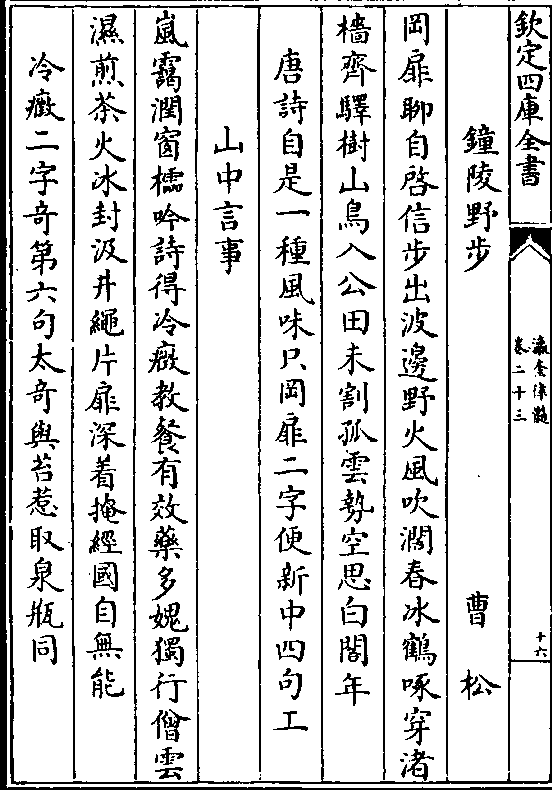 欽定四庫全書
瀛奎律髓
卷二十三
十六
鐘陵野步　　曹松
岡扉聊自啓信步出波邊野火風吹濶春冰鶴啄穿渚
檣齊驛樹山鳥入公田未割孤雲勢空思白閣年
唐詩自是一種風味只岡扉二字便新中四句工
山中言事
嵐靄潤窗櫺吟詩得冷癥教餐有效藥多媿獨行僧雲
濕煎茶火冰封汲井繩片扉深着掩經國自無能
冷癥二字奇第六句太奇與苔惹取泉瓶同